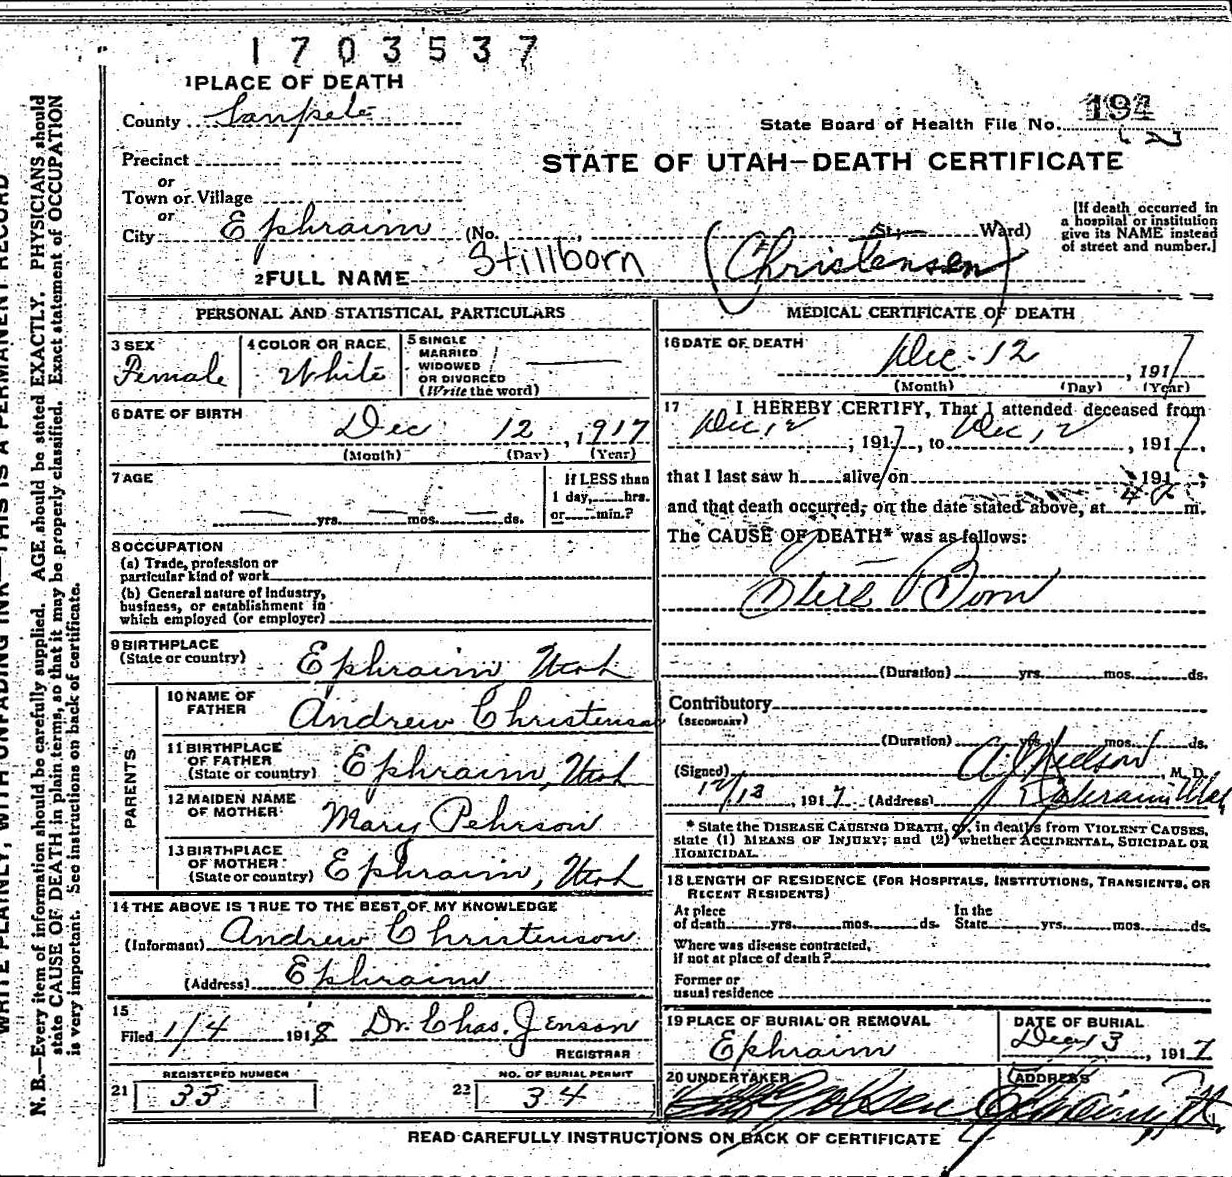 1703537
1 PLACE OF DEATH
County Sanpete
State Board of Health File No. 194
Precinct
or
Town or Village
or
STATE OF UTAH—DEATH CERTIFICATE
City Ephraim (No. St; Ward)
[If death occurred in
a hospital or institution
give its NAME instead
of street and number.]
2 FULL NAME Stillborn (Christensen)
PERSONAL AND STATISTICAL PARTICULARS
3 SEX
Female
4 COLOR OR RACE
White
5 SINGLE
MARRIED
WIDOWED
OR DIVORCED
(Write the word)
6 DATE OF BIRTH
Dec 12, 1917
(Month) (Day) (Year)
7 AGE
yrs. mos. ds.
If LESS than
1 day, hrs.
or min.?
8 OCCUPATION
(a) Trade, profession or
particular kind of work
(b) General nature of industry,
business, or establishment in
which employed (or employer)
9 BIRTHPLACE
(State or country) Ephraim Utah
PARENTS
10 NAME OF
FATHER Andrew Christensen
11 BIRTHPLACE
OF FATHER
(State or country) Ephraim, Utah
12 MAIDEN NAME
OF MOTHER Mary Pehrson
13 BIRTHPLACE
OF MOTHER
(State or country) Ephraim, Utah
14 THE ABOVE IS TRUE TO THE BEST OF MY KNOWLEDGE
(Informant) Andrew Christenson
(Address) Ephraim
15
Filed 1/4 1918 Dr. Chas. Jenson
REGISTRAR
REGISTERED NUMBER
21 33
NO. OF BURIAL PERMIT
22 34
MEDICAL CERTIFICATE OF DEATH
16 DATE OF DEATH
Dec - 12, 1917
(Month) (Day) (Year)
17 I HEREBY CERTIFY, That I attended deceased from
Dec 12, 1917, to Dec 12, 1917,
that I last saw h alive on 191 ;
and that death occurred, on the date stated above, at 4 m.
The CAUSE OF DEATH* was as follows:
Still Born
(Duration) yrs. mos. ds.
Contributory
(SECONDARY)
(Duration) yrs. mos. ds.
(Signed) Nielson, M. D.
12/13, 1917 (Address) Ephraim Utah
* State the DISEASE CAUSING DEATH, or, in deaths from VIOLENT CAUSES,
state (1) MEANS OF INJURY; and (2) whether ACCIDENTAL, SUICIDAL OR
HOMICIDAL.
18 LENGTH OF RESIDENCE (FOR HOSPITALS, INSTITUTIONS, TRANSIENTS, OR
RECENT RESIDENTS)
At place
of death yrs. mos. ds.
In the
State yrs. mos. ds.
Where was disease contracted,
if not at place of death?
Former or
usual residence
19 PLACE OF BURIAL OR REMOVAL
Ephraim
DATE OF BURIAL
Dec 13, 1917
20 UNDERTAKER
ADDRESS
Ephraim, Ut.
READ CAREFULLY INSTRUCTIONS ON BACK OF CERTIFICATE
WRITE PLAINLY, WITH UNFADING INK—THIS IS A PERMANENT RECORD
N. B.—Every item of information should be carefully supplied. AGE should be stated EXACTLY. PHYSICIANS should
state CAUSE OF DEATH in plain terms, so that it may be properly classified. Exact statement of OCCUPATION
is very important. See instructions on back of certificate.